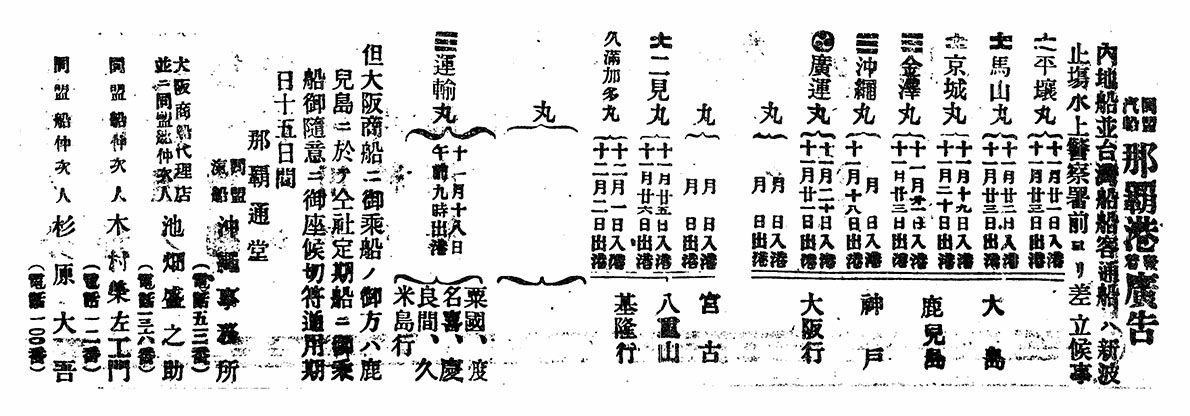 同盟汽船 那覇港發着廣告
內地船並台灣船船客通船ハ新波
止塲水上警察署前ヨリ差立候事
平壤丸 十一月廿二日入港 十一月廿三日出港
馬山丸 十一月廿二日入港 十一月廿三日出港
京城丸 十一月十九日入港 十一月二十日出港
金澤丸 十一月廿二日入港 十一月廿三日出港
沖繩丸 月 日入港 十一月十八日出港
廣運丸 十一月二十日入港 十一月廿一日出港
大島
鹿兒島
神戶
大阪行
丸 月 日入港 月 日出港
丸 月 日入港 月 日出港
大二見丸 十一月廿五日入港 十一月廿六日出港
久滿加多丸 十二月一日入港 十二月二日出港
宮古
八重山
基隆行
丸
運輸丸 十一月十八日午前九時出港
粟國、度
名喜、慶
良間、久
米島行
但大阪商船ニ御乘船ノ御方ハ鹿
兒島ニ於テ仝社定期船ニ御乘
船御隨意ニ御座候切符通用期
日十五日間
那覇通堂
同盟汽船 沖繩事務所
(電話五三番)
大阪商船代理店
並ニ同盟船仲次人 池畑盛之助
(電話一三六番)
同盟船仲次人 木村榮左工門
(電話一二一番)
同盟船仲次人 杉原大吾
(電話一〇〇番)